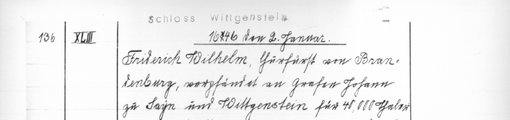 Schloss Wittgenstein
136 XLIII 1646 den 2. Januar.
Friderich Wilhelm, Churfürst von Bran-
denburg, verpfändet an Grafen Johann
zu Sayn und Wittgenstein für 40,000 Thaler